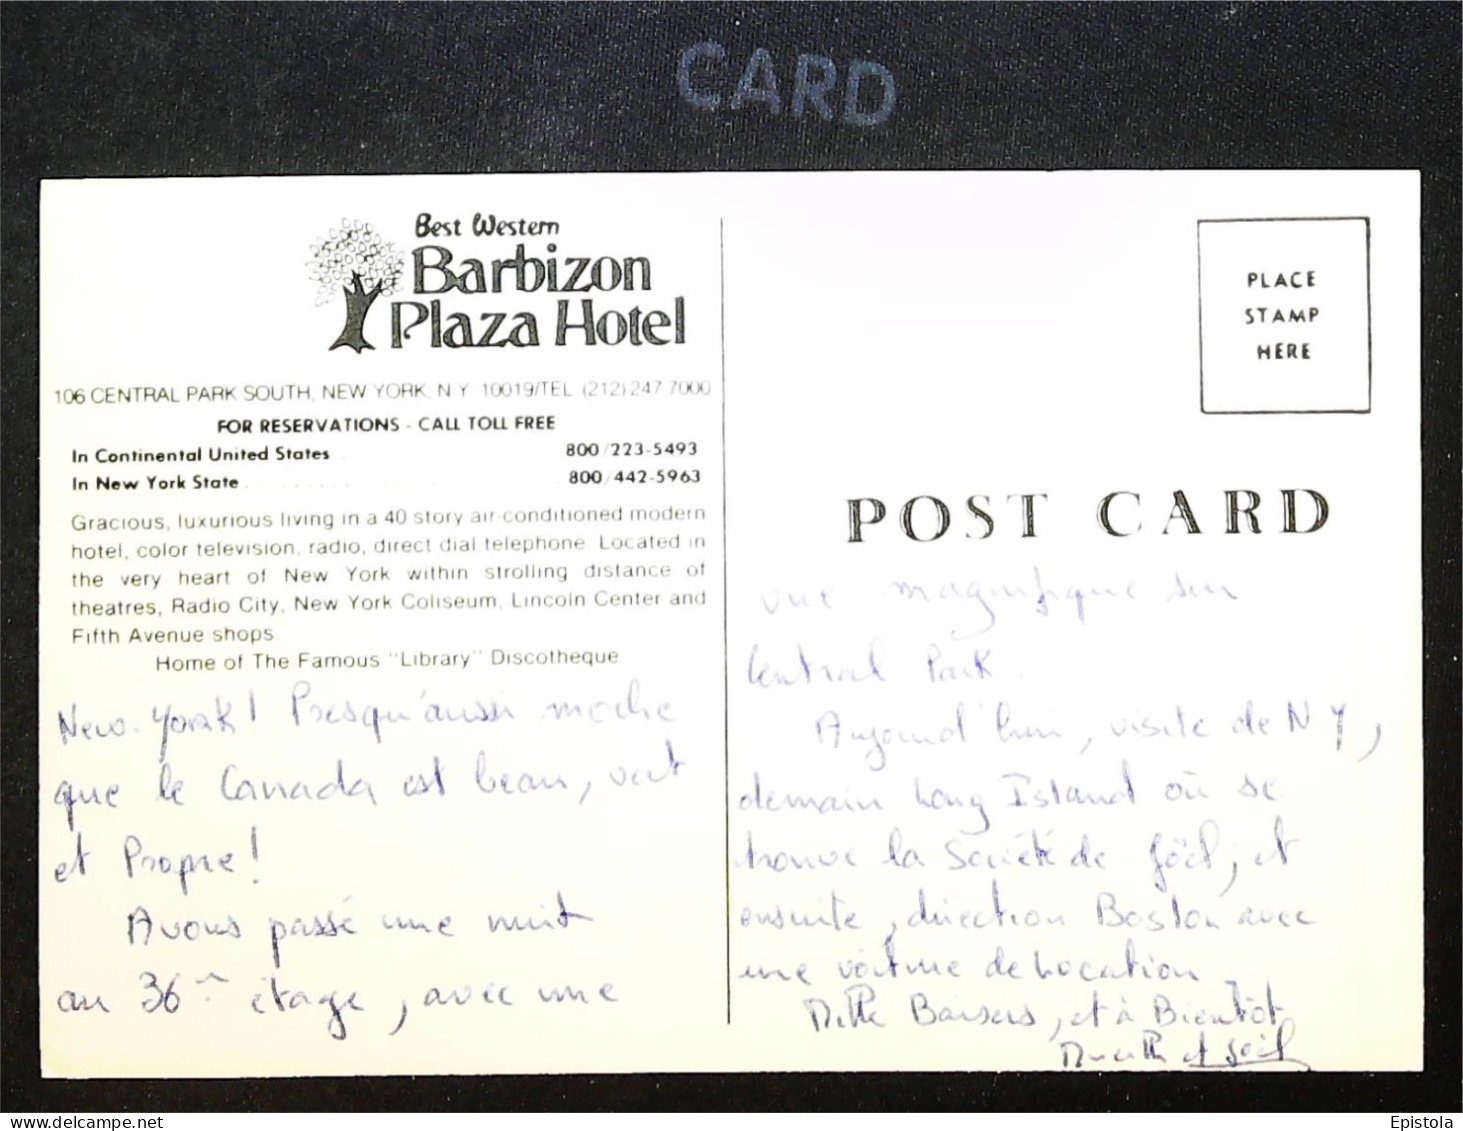 CARD
Best Western
Barbizon
Plaza Hotel
106 CENTRAL PARK SOUTH, NEW YORK, N Y 10019/TEL (212) 247 7000
FOR RESERVATIONS - CALL TOLL FREE
In Continental United States 800/223-5493
In New York State 800/442-5963
Gracious, luxurious living in a 40 story air-conditioned modern
hotel, color television, radio, direct dial telephone. Located in
the very heart of New York within strolling distance of
theatres, Radio City, New York Coliseum, Lincoln Center and
Fifth Avenue shops.
Home of The Famous "Library" Discotheque
New-York! Presqu'aussi moche
que le Canada est beau, vert
et Propre!
Avons passé une nuit
au 36 étage, avec une
PLACE
STAMP
HERE
POST CARD
vue magnifique sur
Central Park.
Aujourd'hui, visite de N Y,
demain Long Island où se
trouve la Société de Joël, et
ensuite, direction Boston avec
une voiture de location
Mille Baisers, et à Bientôt
et Joël
Epistola